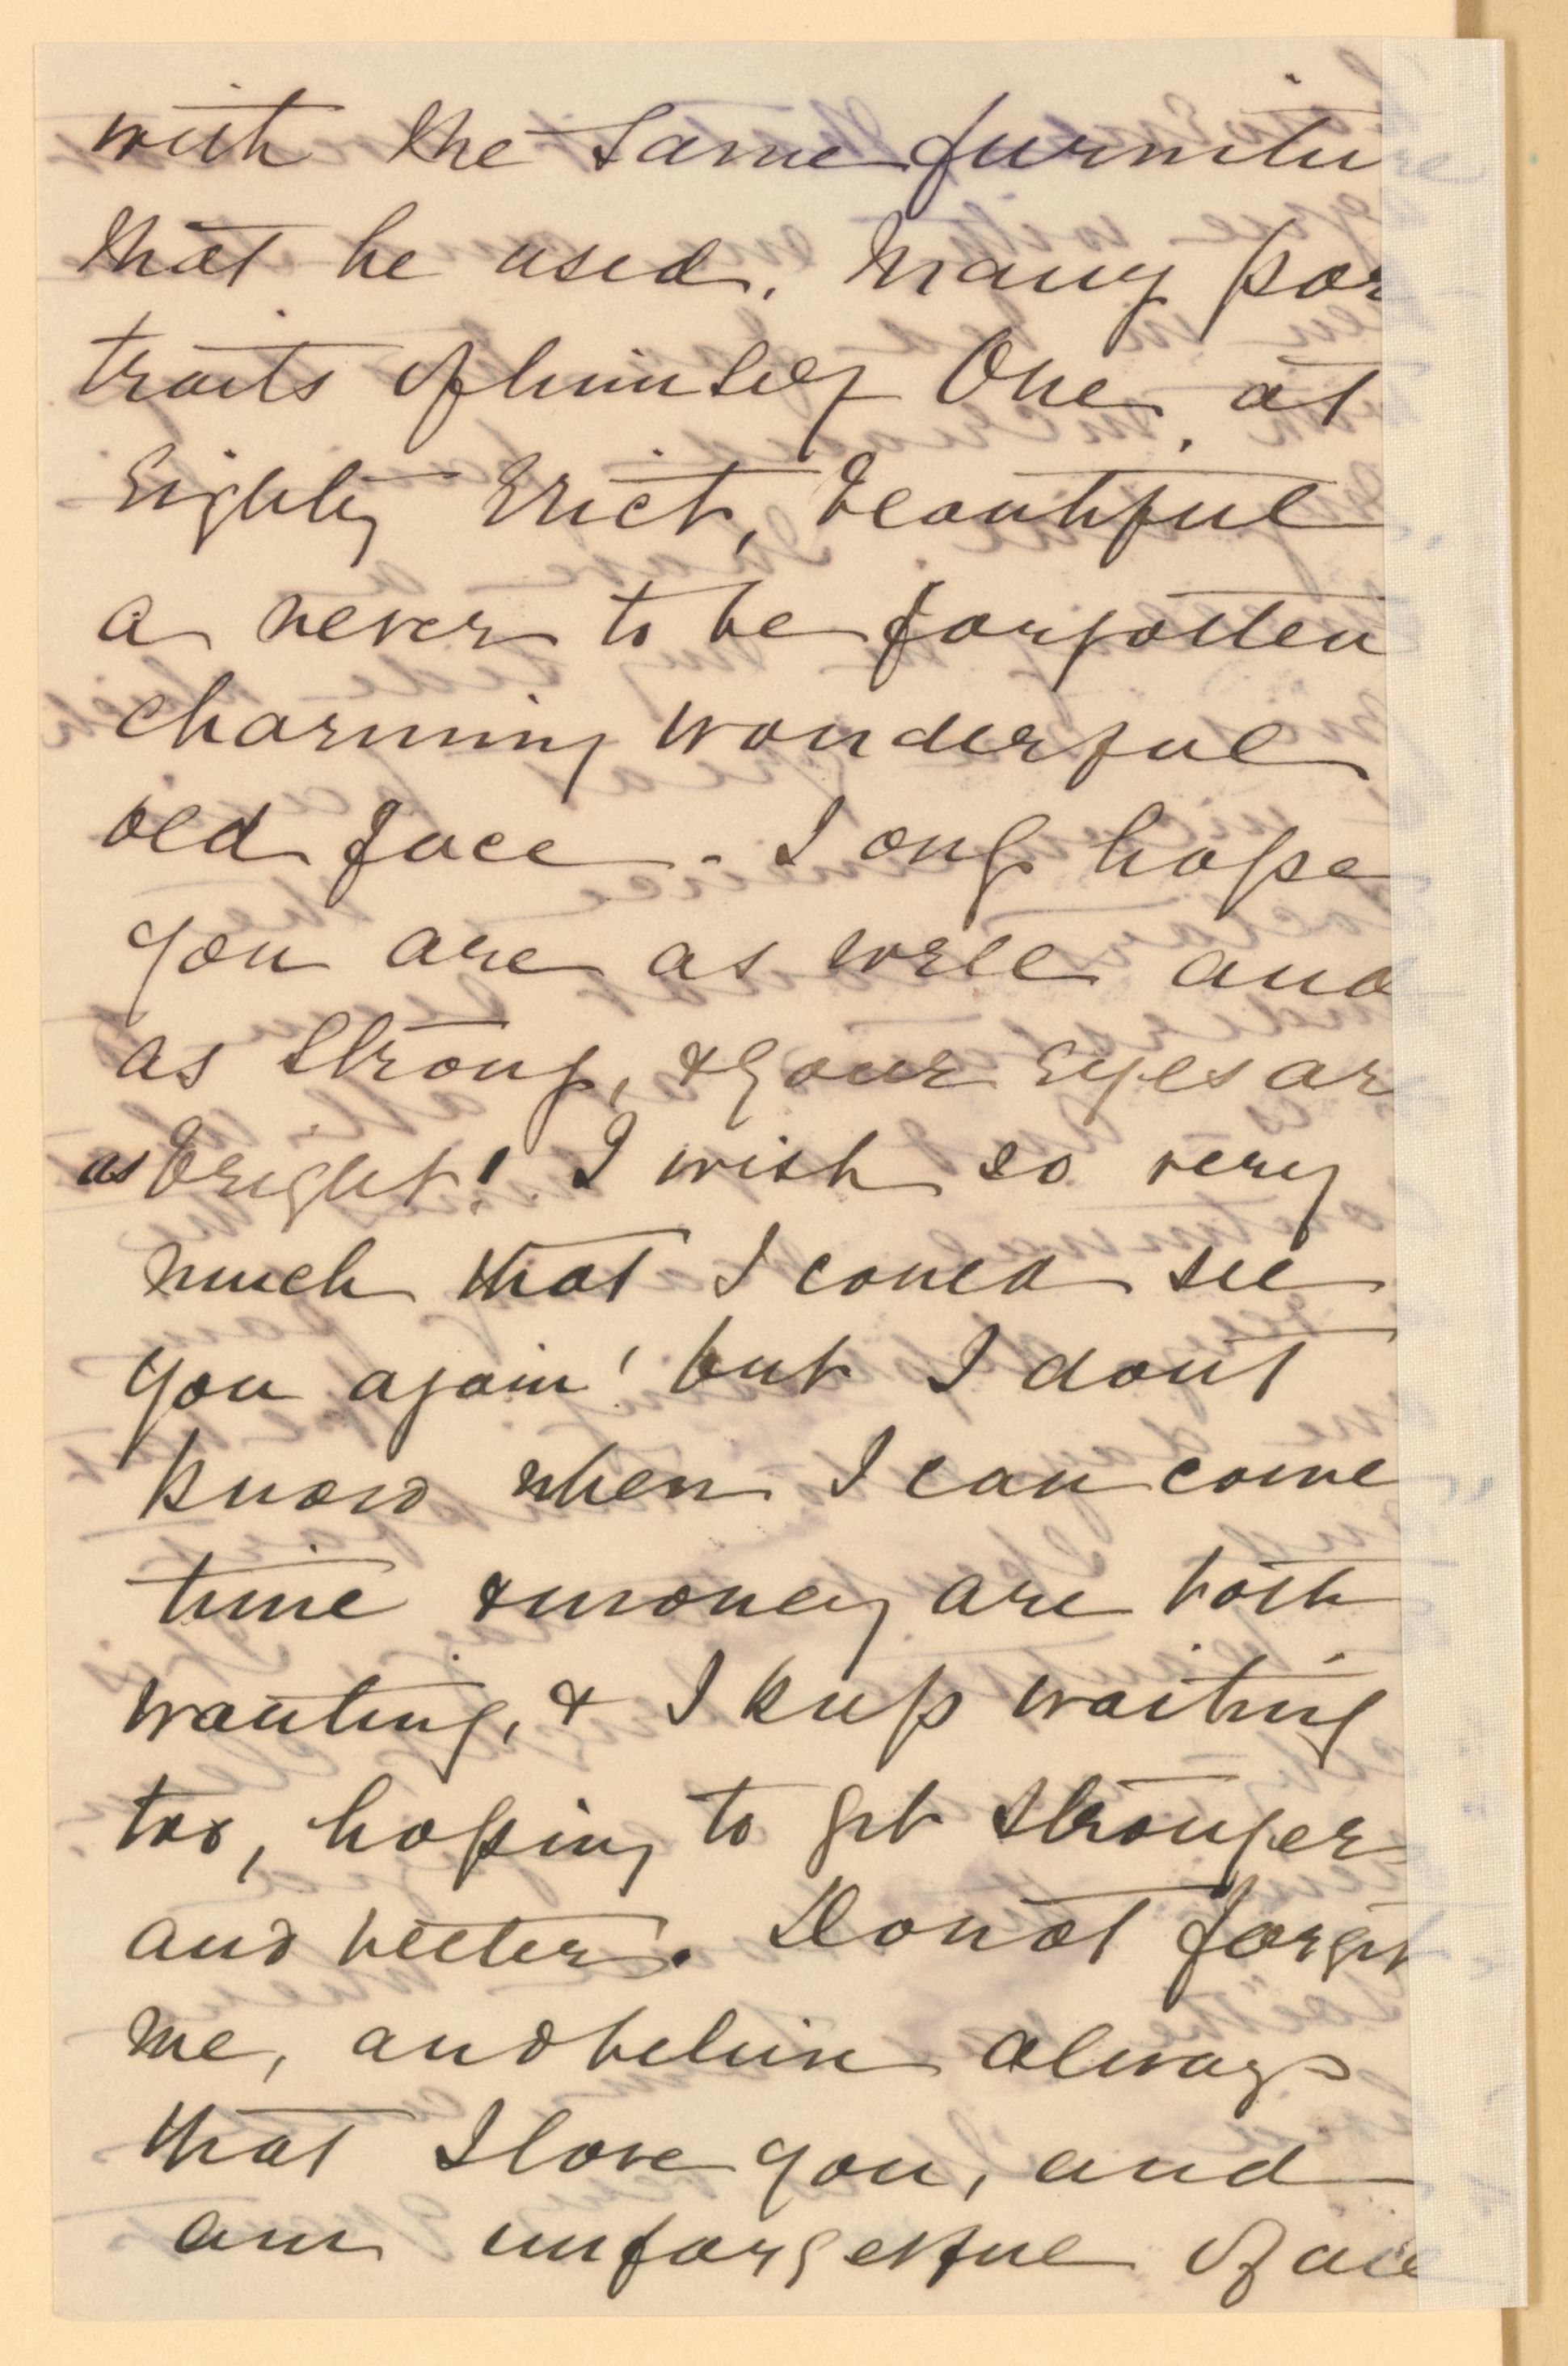 with the same furniture
that he used. Many por
traits of himself One, at
Eighty Erect, beautiful
a never to be forgotten
charming wonderful
old face - I only hope
you are as well and
as strong, & your Eyes are
as bright! I wish so very
much that I could see
you again! but I dont
know when I can come
time & money are both
wanting, & I keep waiting
too, hoping to get stronger
and better. Do not forget
me, and believe always
that I love you, and
am unforgetful of all